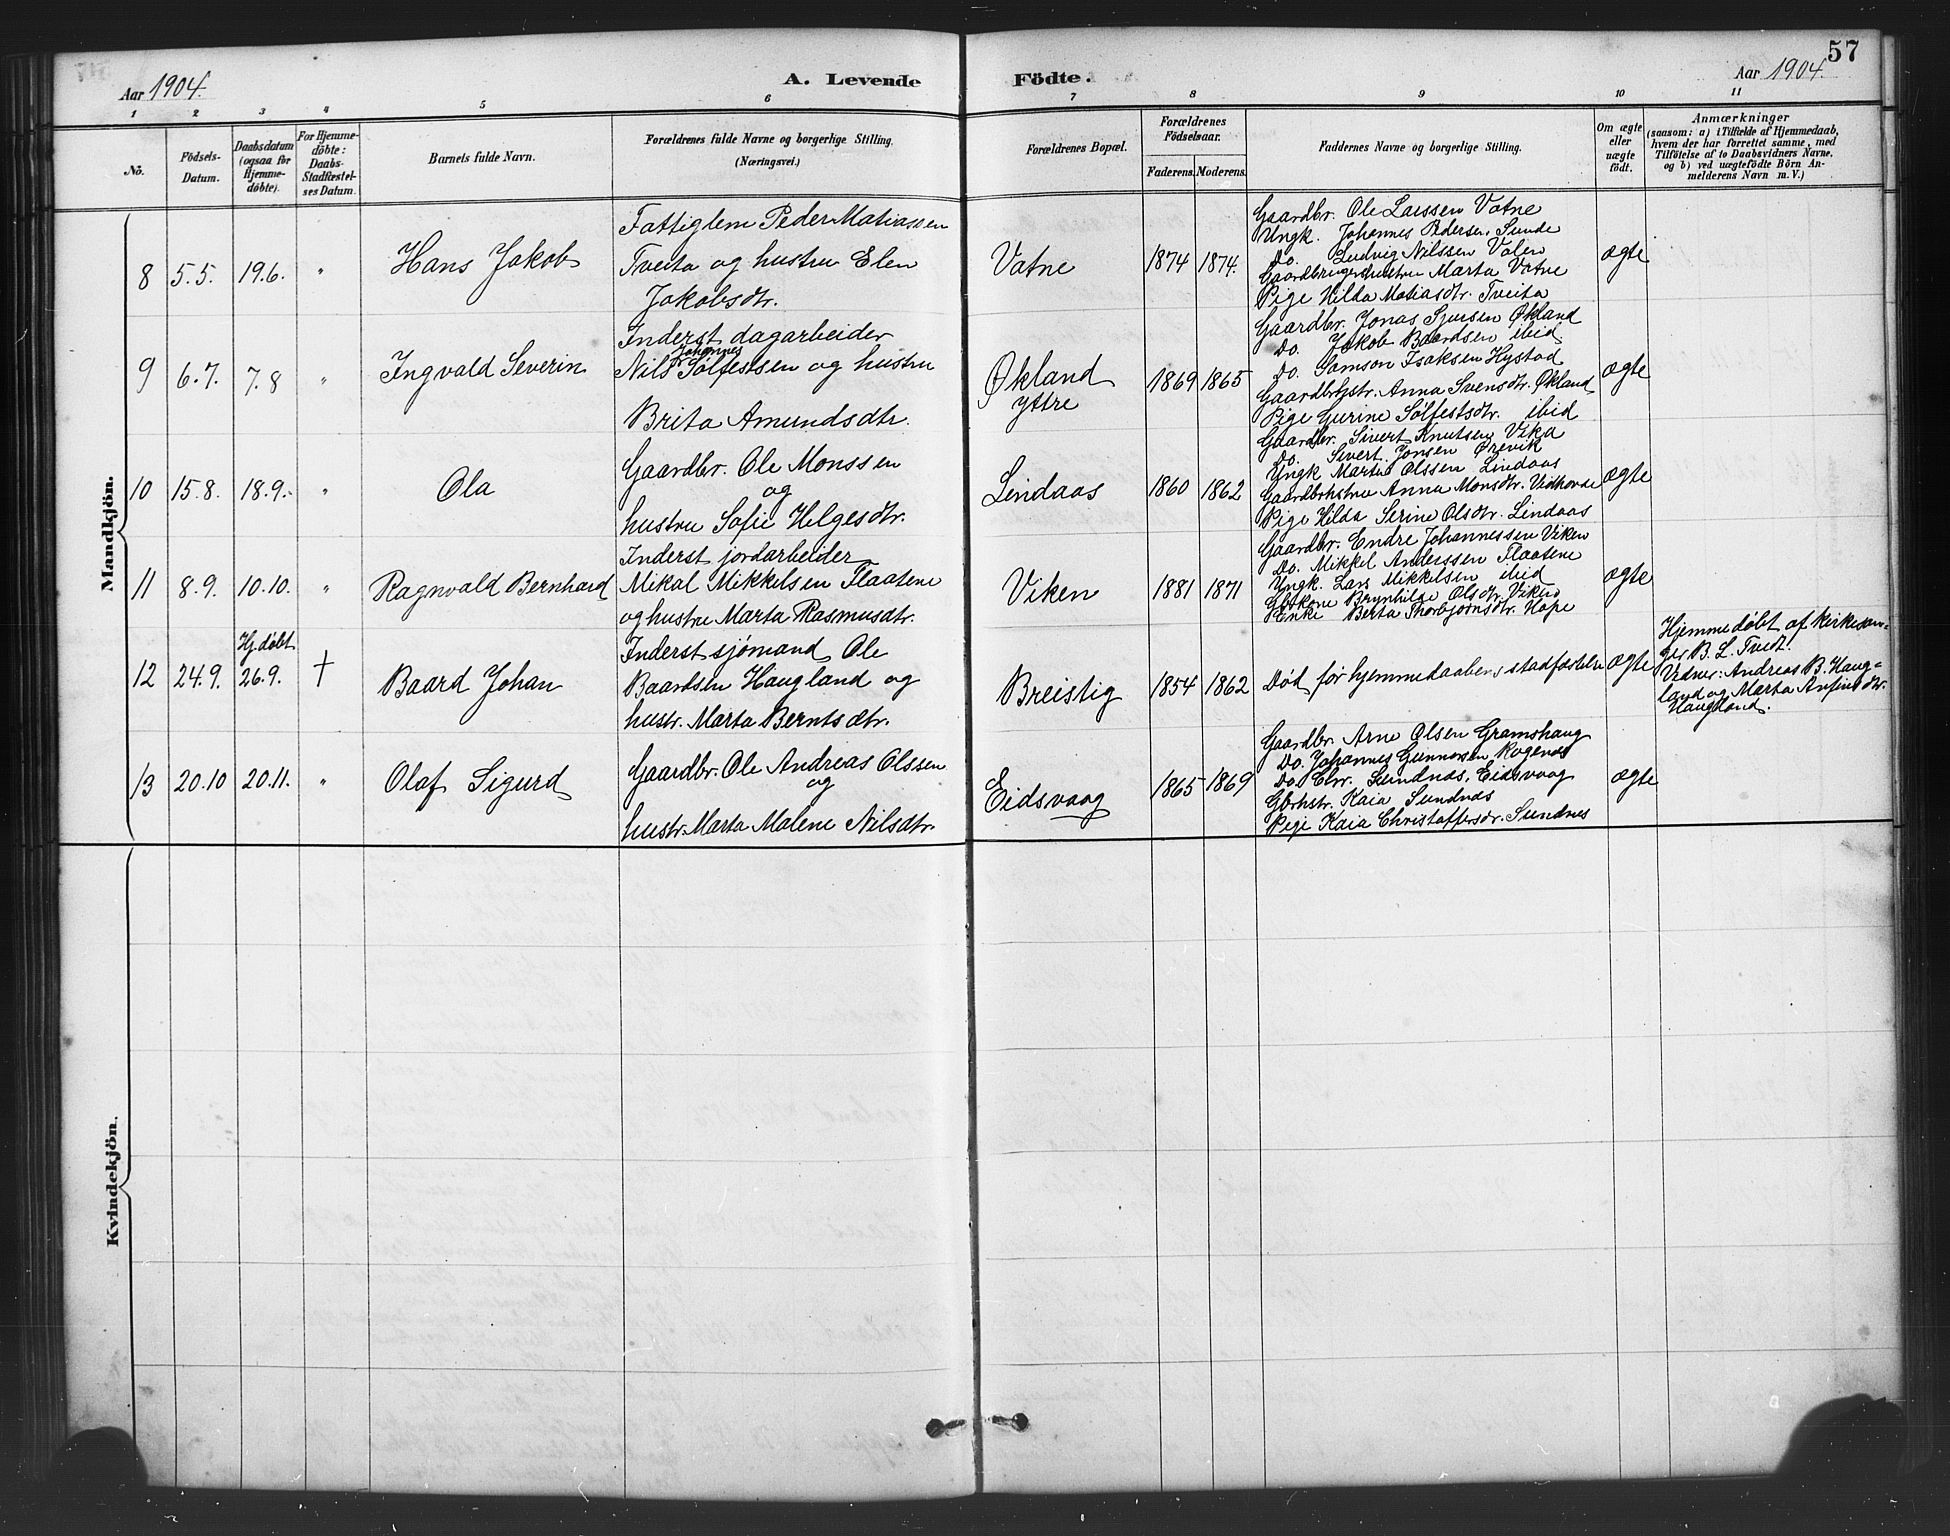 57
Aar 1904.
A. Levende Födte.
Aar 1904.
1 2 3 4 5 6 7 8 9 10 11
No.
Födsels-
Datum.
Daabsdatum
(ogsaa for
Hjemme-
döbte).
For Hjemme-
döbte:
Daabs-
Stadfæstel-
ses Datum.
Barnets fulde Navn.
Forældrenes fulde Navne og borgerlige Stilling.
(Næringsvei.)
Forældrenes Bopæl.
Forældrenes
Födselsaar.
Faderens. Moderens.
Faddernes Navne og borgerlige Stilling.
Om ægte
eller
uægte
födt.
Anmærkninger
(saasom: a) i Tilfælde af Hjemmedaab,
hvem der har forrettet samme, med
Tilföielse af to Daabsvidners Navne,
og b) ved uægtefödte Börn An-
melderens Navn m. V.)
Mandkjön.
8 5.5. 19.6. " Hans Jakob
Fattiglem Peder Matiassen
Tveita og hustru Elen
Jakobsdtr.
Vatne 1874 1874.
Gaardbr. Ole Larssen Vatne
Ungk. Johannes Pedersen, Sunde
Do. Ludvig Nilssen Valen
Gaardbrugershustru Marta Vatne
Pige Hilda Matiasdtr. Tveita
ægte
9 6.7. 7.8 " Ingvald Severin
Inderst dagarbeider
Johannes
Nils Sølfestsen og hustru
Brita Amundsdtr.
Økland
Ytre
1869 1865
Gaardbr. Jonas Sjursen Økland
Do. Jakob Baardsen ibid
Do. Samson Isaksen Hystad
Gaardbrhstr. Anna Svensdtr. Økland
Pige Gurine Sølfestsdtr. ibid
ægte
10 15.8. 18.9. " Ola
Gaardbr. Ole Monssen
og
hustru Sofie Helgesdtr.
Lindaas 1860 1862
Gaardbr. Sivert Knutsen Vika
Do. Sivert Jonsen Ørevik
Ungk Martin Olssen Lindaas
Gaardbrhstru Anna Monsdtr.
Pige Hilda Serine Olsdtr. Lindaas
ægte
11 8.9. 10.10. " Ragnvald Bernhard
Inderst jordarbeider
Mikal Mikkelsen Flaatene
og hustru Marta Rasmusdtr.
Viken 1881 1871
Gaardbr. Endre Johannessen Viken
Do. Mikkel Anderssen Flaatene
Ungk. Lars Mikkelsen ibid
Gbrkone Brynhilde Olsdtr. Viken
Enke Berta Thorbjørnsdtr. Hope
ægte
12 24.9.
Hj.døbt
26.9. † Baard Johan
Inderst sjømand Ole
Baardsen Haugland og
hustr. Marta Berntsdtr.
Breistig 1854 1862
Død før hjemmedaabens stadfæstelse
ægte
Hjemmedøbt af kirkesan-
ger B. L. Tvedt.
Vidner: Andreas B. Haug-
land og Marta Anfinsdtr.
Haugland.
13 20.10 20.11. " Olaf Sigurd
Gaardbr. Ole Andreas Olssen
og
hustr. Marta Malene Nilsdtr.
Eidsvaag 1865 1869
Gaardbr. Arne Olsen Gramshaug
Do. Johannes Gunnarsen Rogenes
Do. Chr. Sundnes, Eidsvaag
Gbrhstr. Kaia Sundnes
Pige Kaia Christoffersdr. Sundnes
ægte
Kvindekjön.